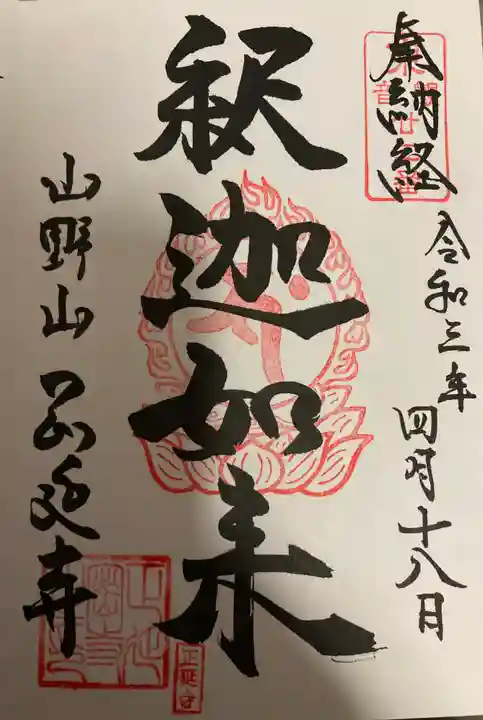 奉納経
令和三年
四月十八日
釈迦如来
山野山 正延寺
正延寺